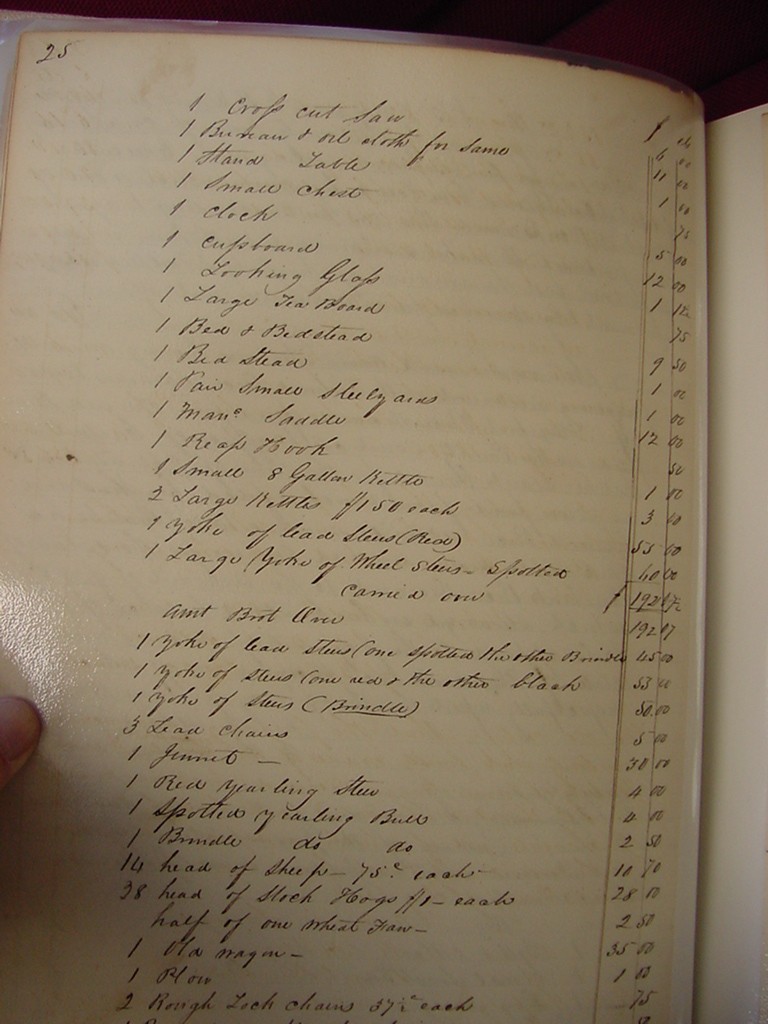 25
$ cts
1 Cross cut Saw 6 00
1 Bureau & oil cloth for same 11 00
1 Stand Table 1 00
1 Small Chest 75
1 clock 5 00
1 cupboard 12 00
1 Looking Glass 1 12½
1 Large Tea Board 75
1 Bed & Bedstead 9 50
1 Bed Stead 1 00
1 Pair Small Steelyards 1 00
1 Mans Saddle 12 00
1 Reap Hook 50
1 Small 8 Gallon Kettle 1 00
2 Large Kettles $1 50 each 3 00
1 Yoke of lead Steers (Red) 55 00
1 Large Yoke of Wheel Steers - Spotted 60 00
carried over $ 192 17½
Amt Brot Over 192 17
1 Yoke of lead Steers (one spotted the other Brindle 45 00
1 Yoke of Steers (one red & the other black 53 00
1 Yoke of Steers (Brindle) 50.00
3 Lead Chains 5 00
1 Jennet - 30 00
1 Red yearling Steer 4 00
1 Spotted yearling Bull 4 00
1 Brindle do do 2 50
14 head of Sheep - 75c each 10 70
28 head of Stock Hogs $1 - each 28 00
half of one Wheat Fan - 2 50
1 Old wagon - 35 00
1 Plow 1 00
2 Rough Lock Chains 37½ each 75